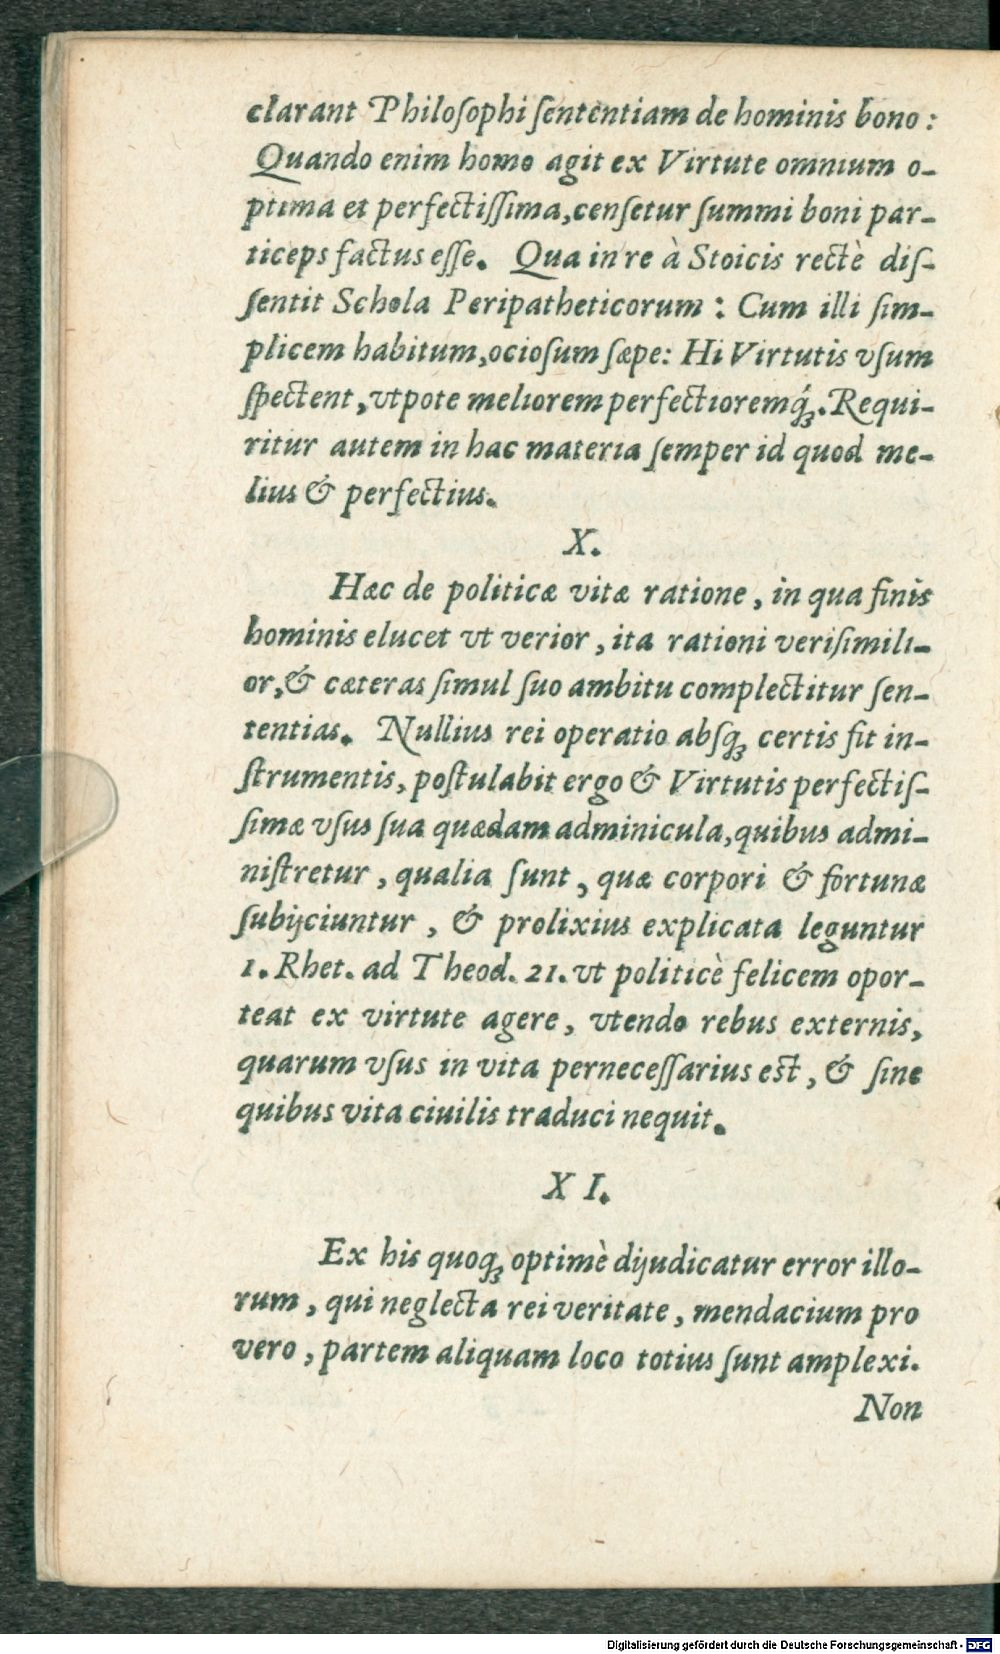 clarant Philoſophi ſententiam de hominis bono:
Quando enim homo agit ex Virtute omnium o-
ptima et perfectiſſima, cenſetur ſummi boni par-
ticeps factus eſſe. Qua in re à Stoicis rectè diſ-
ſentit Schola Peripatheticorum: Cum illi ſim-
plicem habitum, ocioſum ſæpe: Hi Virtutis vſum
ſpectent, vtpote meliorem perfectioremq́ꝫ. Requi-
ritur autem in hac materia ſemper id quod me-
lius & perfectius.
X.
Hæc de politicæ vitæ ratione, in qua finis
hominis elucet vt verior, ita rationi veriſimili-
or, & cæteras ſimul ſuo ambitu complectitur ſen-
tentias. Nullius rei operatio abſqꝫ certis fit in-
ſtrumentis, poſtulabit ergo & Virtutis perfectiſ-
ſimæ vſus ſua quædam adminicula, quibus admi-
niſtretur, qualia ſunt, quæ corpori & fortunæ
ſubijciuntur, & prolixius explicata leguntur
1. Rhet. ad Theod. 21. vt politicè felicem opor-
teat ex virtute agere, vtendo rebus externis,
quarum vſus in vita perneceſſarius eſt, & ſine
quibus vita ciuilis traduci nequit.
XI.
Ex his quoqꝫ optimè dijudicatur error illo-
rum, qui neglecta rei veritate, mendacium pro
vero, partem aliquam loco totius ſunt amplexi.
Non
Digitalisierung gefördert durch die Deutsche Forschungsgemeinschaft - DFG